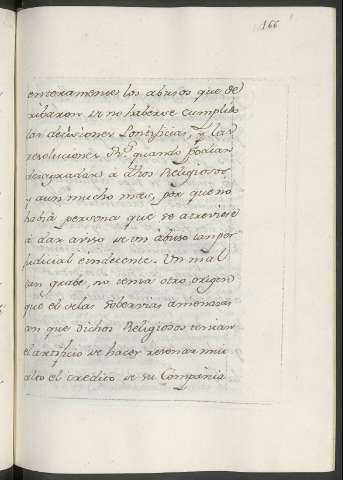 166
enteramente, los abusos que de
ribaron de no haberse cumplido
las decisiones Pontificias, y las
resoluciones Rs. quando podian
desagradar a dhos Religiosos
y aun mucho mas, por que no
habia persona que se atreviese
á dar aviso de un abuso tan per
judicial e indecente. Un mal
tan grabe, no tenia otro origen
que el de las sobervias amenazas
con que dichos Religiosos tenian
el artificio de hacer resonar mui
alto el credito de su Compañia